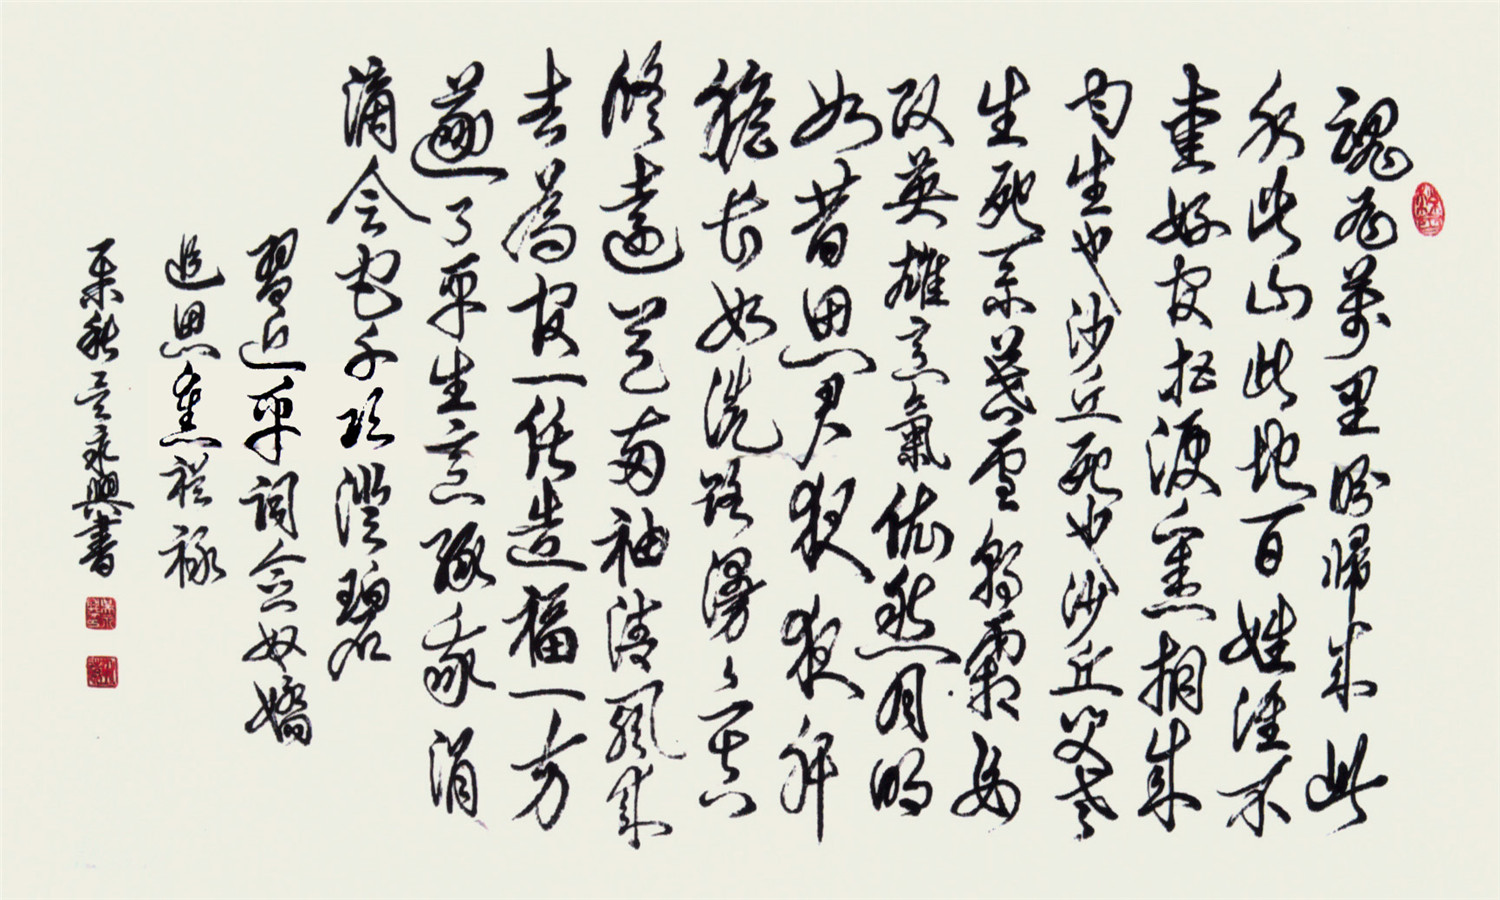 魂飛萬里盼歸來此
水此山此地百姓誰不
愛好官把淚焦桐成
雨生也沙丘死也沙丘父老
生死系暮雪朝霜毋
改英雄意氣依然月明
如昔思君夜夜肝
膽長如洗路漫々其
修遠矣兩袖清風來
去為官一任造福一方
遂了平生意綠我涓
滴會它千頃澄碧
習近平詞念奴嬌
追思焦裕祿
秋永興書